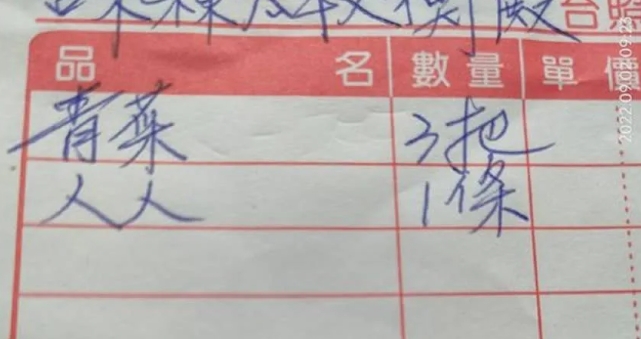 台照
品名 數量 單價
青菜 3把
人人 1條
2022.09.02 09:23